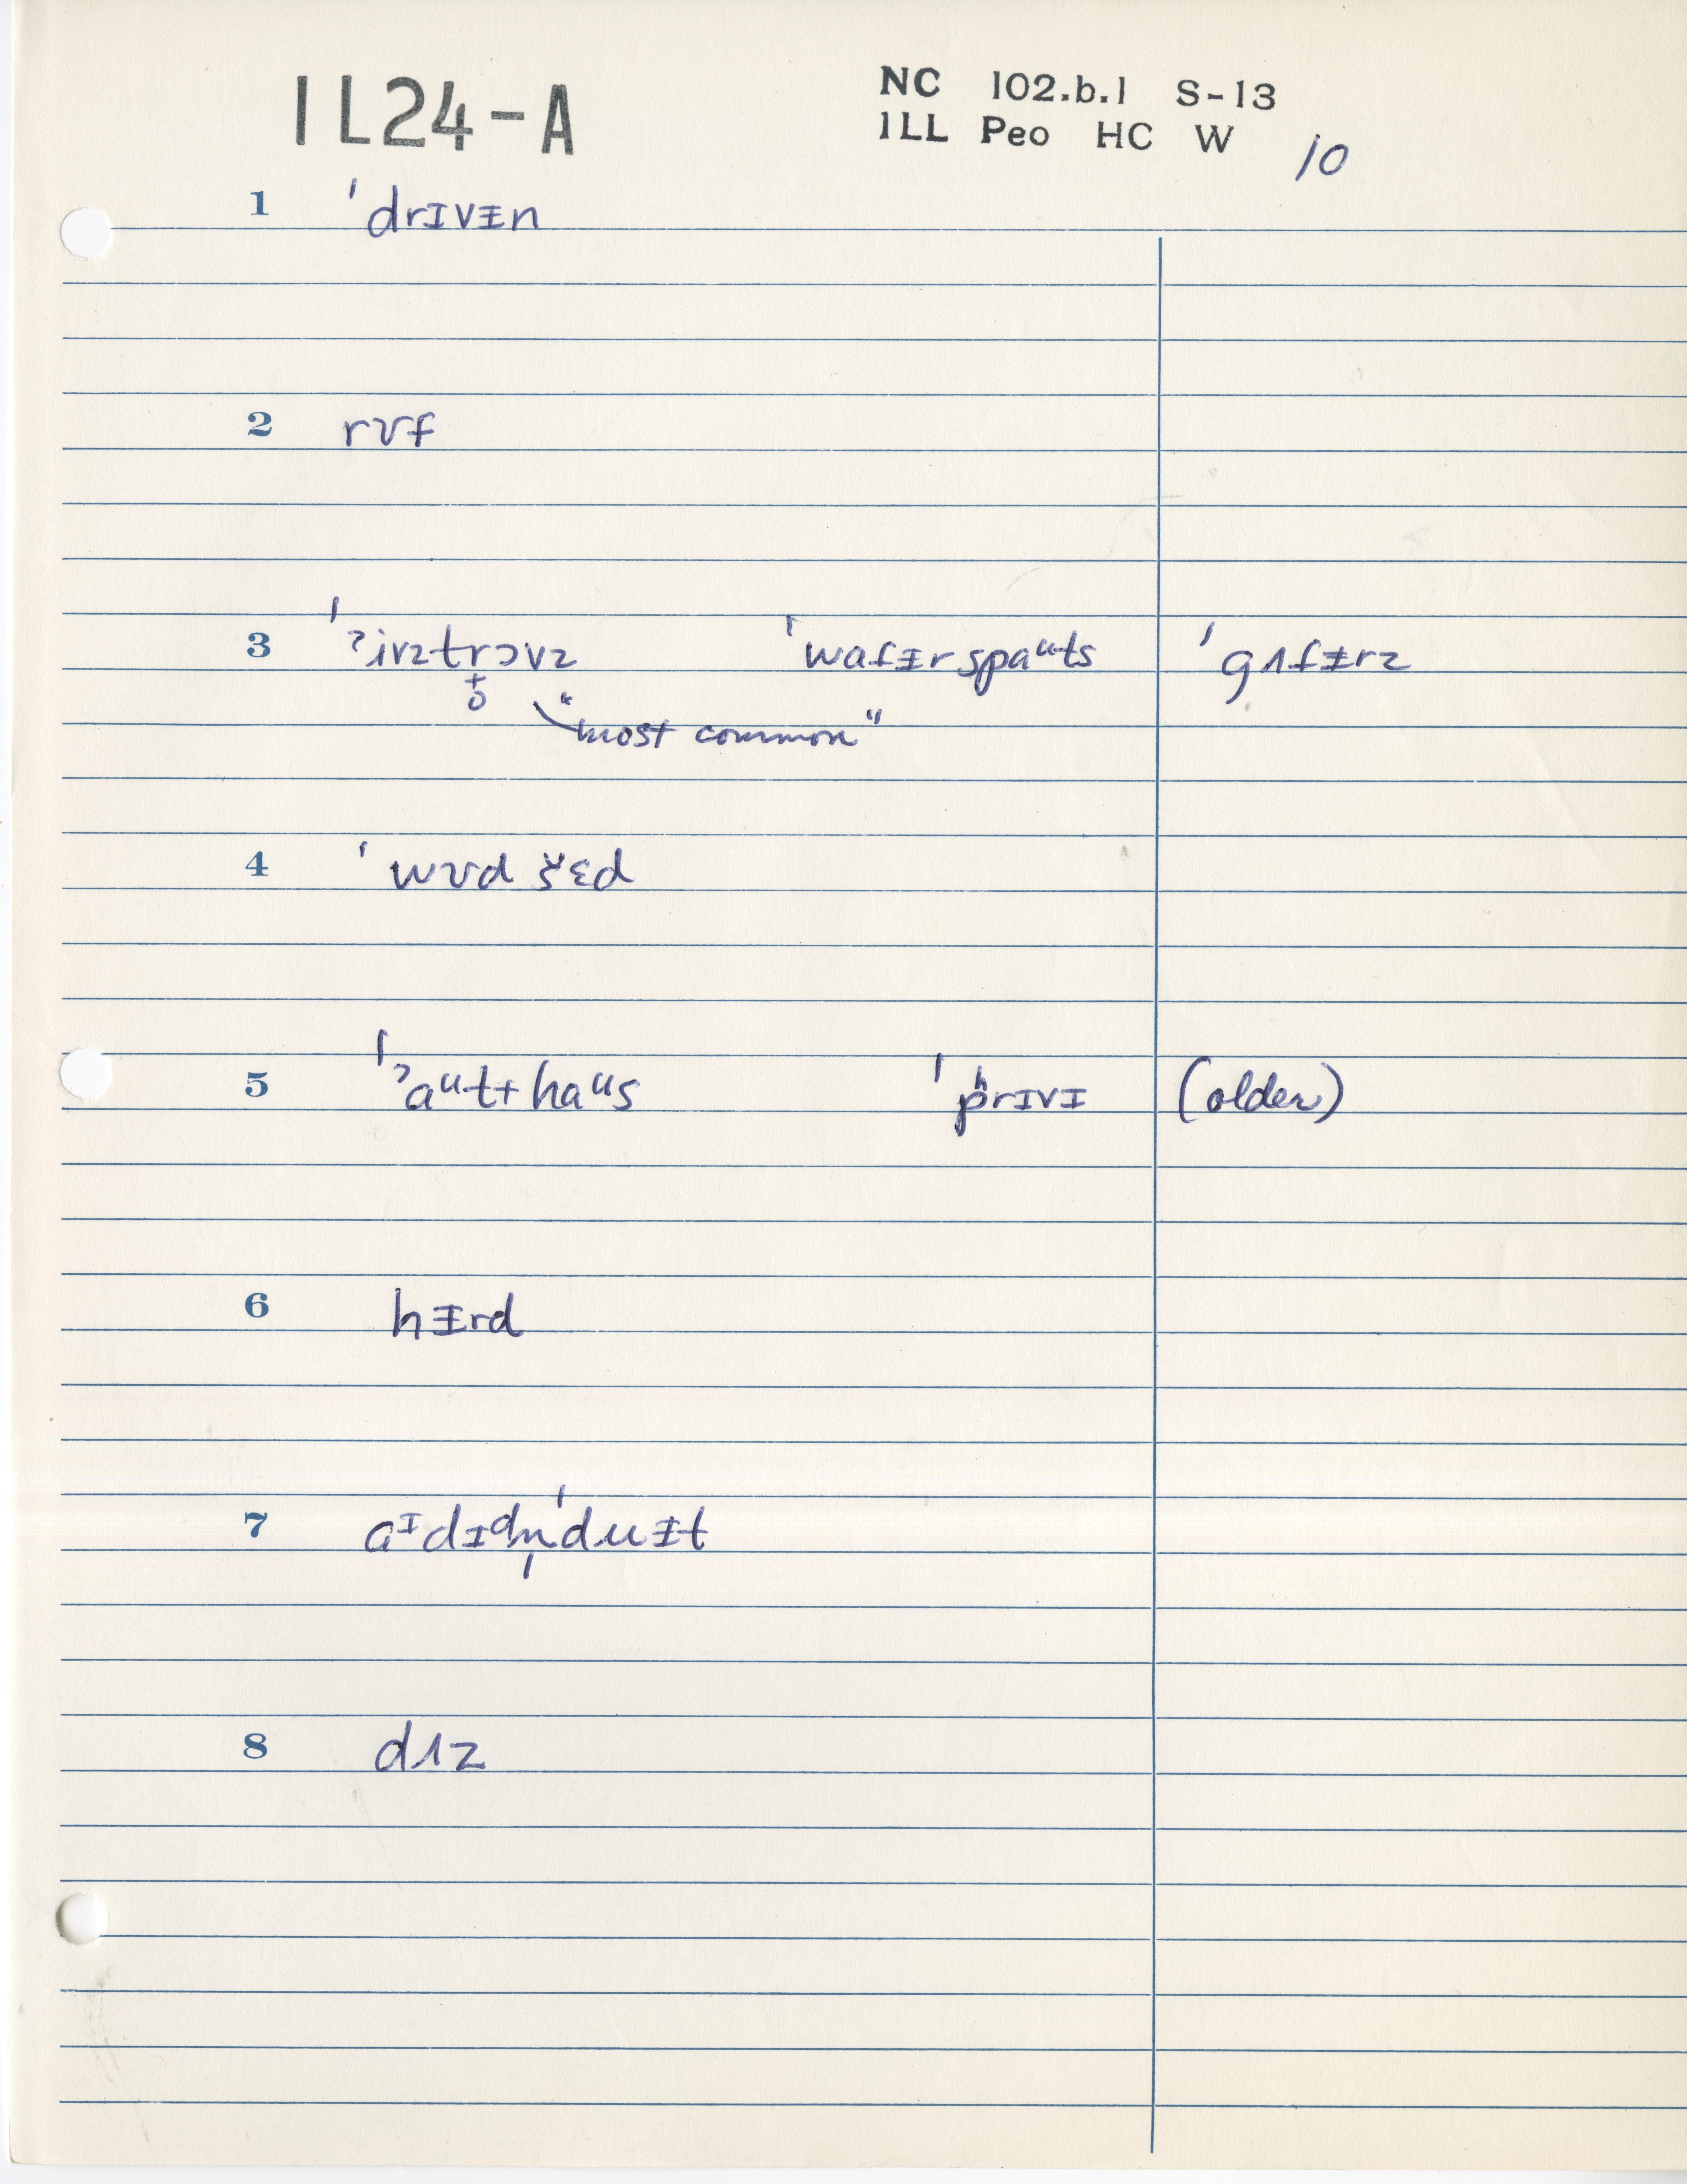 IL24-A
NC 102.b.1 S-13
ILL Peo HC W 10
1 ˈdrɪvɪ̵n
2 rʊf
3 ˈʔivztrɔvz ˈwat̬ɪ̵rspaᵘts ˈgʌt̬ɪ̵rz
"most common"
4 ˈwʊd š̌ɛd
5 ˈʔaᵘt+haᵘs ˈpʰrɪvɪ (older)
6 hɪ̵rd
7 aᶦdɪdn̩ˈduɪ̵t
8 dʌz